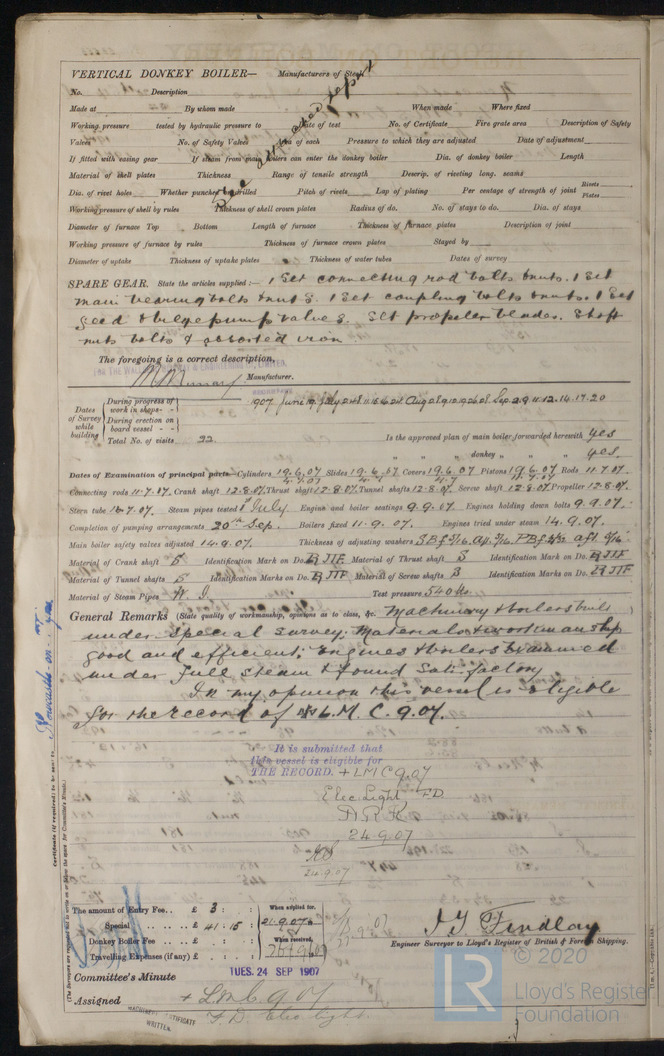 VERTICAL DONKEY BOILER— Manufacturers of Steel
No. Description
Made at By whom made When made Where fixed
Working pressure tested by hydraulic pressure to Date of test No. of Certificate Fire grate area Description of Safety
Valves No. of Safety Valves Area of each Pressure to which they are adjusted Date of adjustment
If fitted with easing gear If steam from main boilers can enter the donkey boiler Dia. of donkey boiler Length
Material of shell plates Thickness Range of tensile strength Descrip. of riveting long. seams
Dia. of rivet holes Whether punched or drilled Pitch of rivets Lap of plating Per centage of strength of joint Rivets Plates
Working pressure of shell by rules Thickness of shell crown plates Radius of do. No. of stays to do. Dia. of stays
Diameter of furnace Top Bottom Length of furnace Thickness of furnace plates Description of joint
Working pressure of furnace by rules Thickness of furnace crown plates Stayed by
Diameter of uptake Thickness of uptake plates Thickness of water tubes Dates of survey
See attached report
SPARE GEAR. State the articles supplied:— 1 Set connecting rod bolts & nuts. 1 Set
main bearing bolts & nuts. 1 Set coupling bolts & nuts. 1 Set
feed & bilge pump valves. Set propeller blades. Shaft
nuts bolts & assorted iron
The foregoing is a correct description,
Manufacturer.
Dates of Survey while building
During progress of work in shops - -
During erection on board vessel - - -
Total No. of visits 22
Is the approved plan of main boiler forwarded herewith yes
" " " donkey " " yes.
Dates of Examination of principal parts—Cylinders 19.6.07 Slides 19.6.07 Covers 19.6.07 Pistons 19.6.07 Rods 11.7.07.
Connecting rods 11.7.07. Crank shaft 12.8.07. Thrust shaft 12.8.07. Tunnel shafts 12.8.07. Screw shaft 12.8.07 Propeller 12.8.07.
Stern tube 16.7.07. Steam pipes tested 1st July Engine and boiler seatings 9.9.07. Engines holding down bolts 9.9.07.
Completion of pumping arrangements 20th Sep. Boilers fixed 11.9.07. Engines tried under steam 14.9.07.
Main boiler safety valves adjusted 14.9.07. Thickness of adjusting washers
Material of Crank shaft S Identification Mark on Do. Material of Thrust shaft S Identification Mark on Do.
Material of Tunnel shafts S Identification Marks on Do. Material of Screw shafts S Identification Marks on Do.
Material of Steam Pipes W. I. Test pressure 540 lbs.
General Remarks (State quality of workmanship, opinions as to class, &c. Machinery & boilers built
under special survey; Materials & workmanship
good and efficient; Engines & boilers examined
under full steam & found satisfactory
In my opinion this vessel is eligible
for the record of L.M.C. 9.07.
It is submitted that
this vessel is eligible for
THE RECORD. + LMC 9.07
Elec. Light, FD
24.9.07
24.9.07
Newcastle-on-Tyne
Certificate (if required) to be sent to
(The Surveyors are requested not to write on or below the space for Committee's Minute.)
The amount of Entry Fee . . £ 3 : :
Special . . . . £ 41 : 15 :
Donkey Boiler Fee . . £ : :
Travelling Expenses (if any) £ : :
When applied for,
21.9.07
When received,
J.G. Findlay
Engineer Surveyor to Lloyd's Register of British & Foreign Shipping.
TUES. 24 SEP 1907
Committee's Minute
Assigned + LMC 9.07
F.D. Elec light.
MACHINERY CERTIFICATE
WRITTEN.
© 2020
LR Lloyd's Register
Foundation